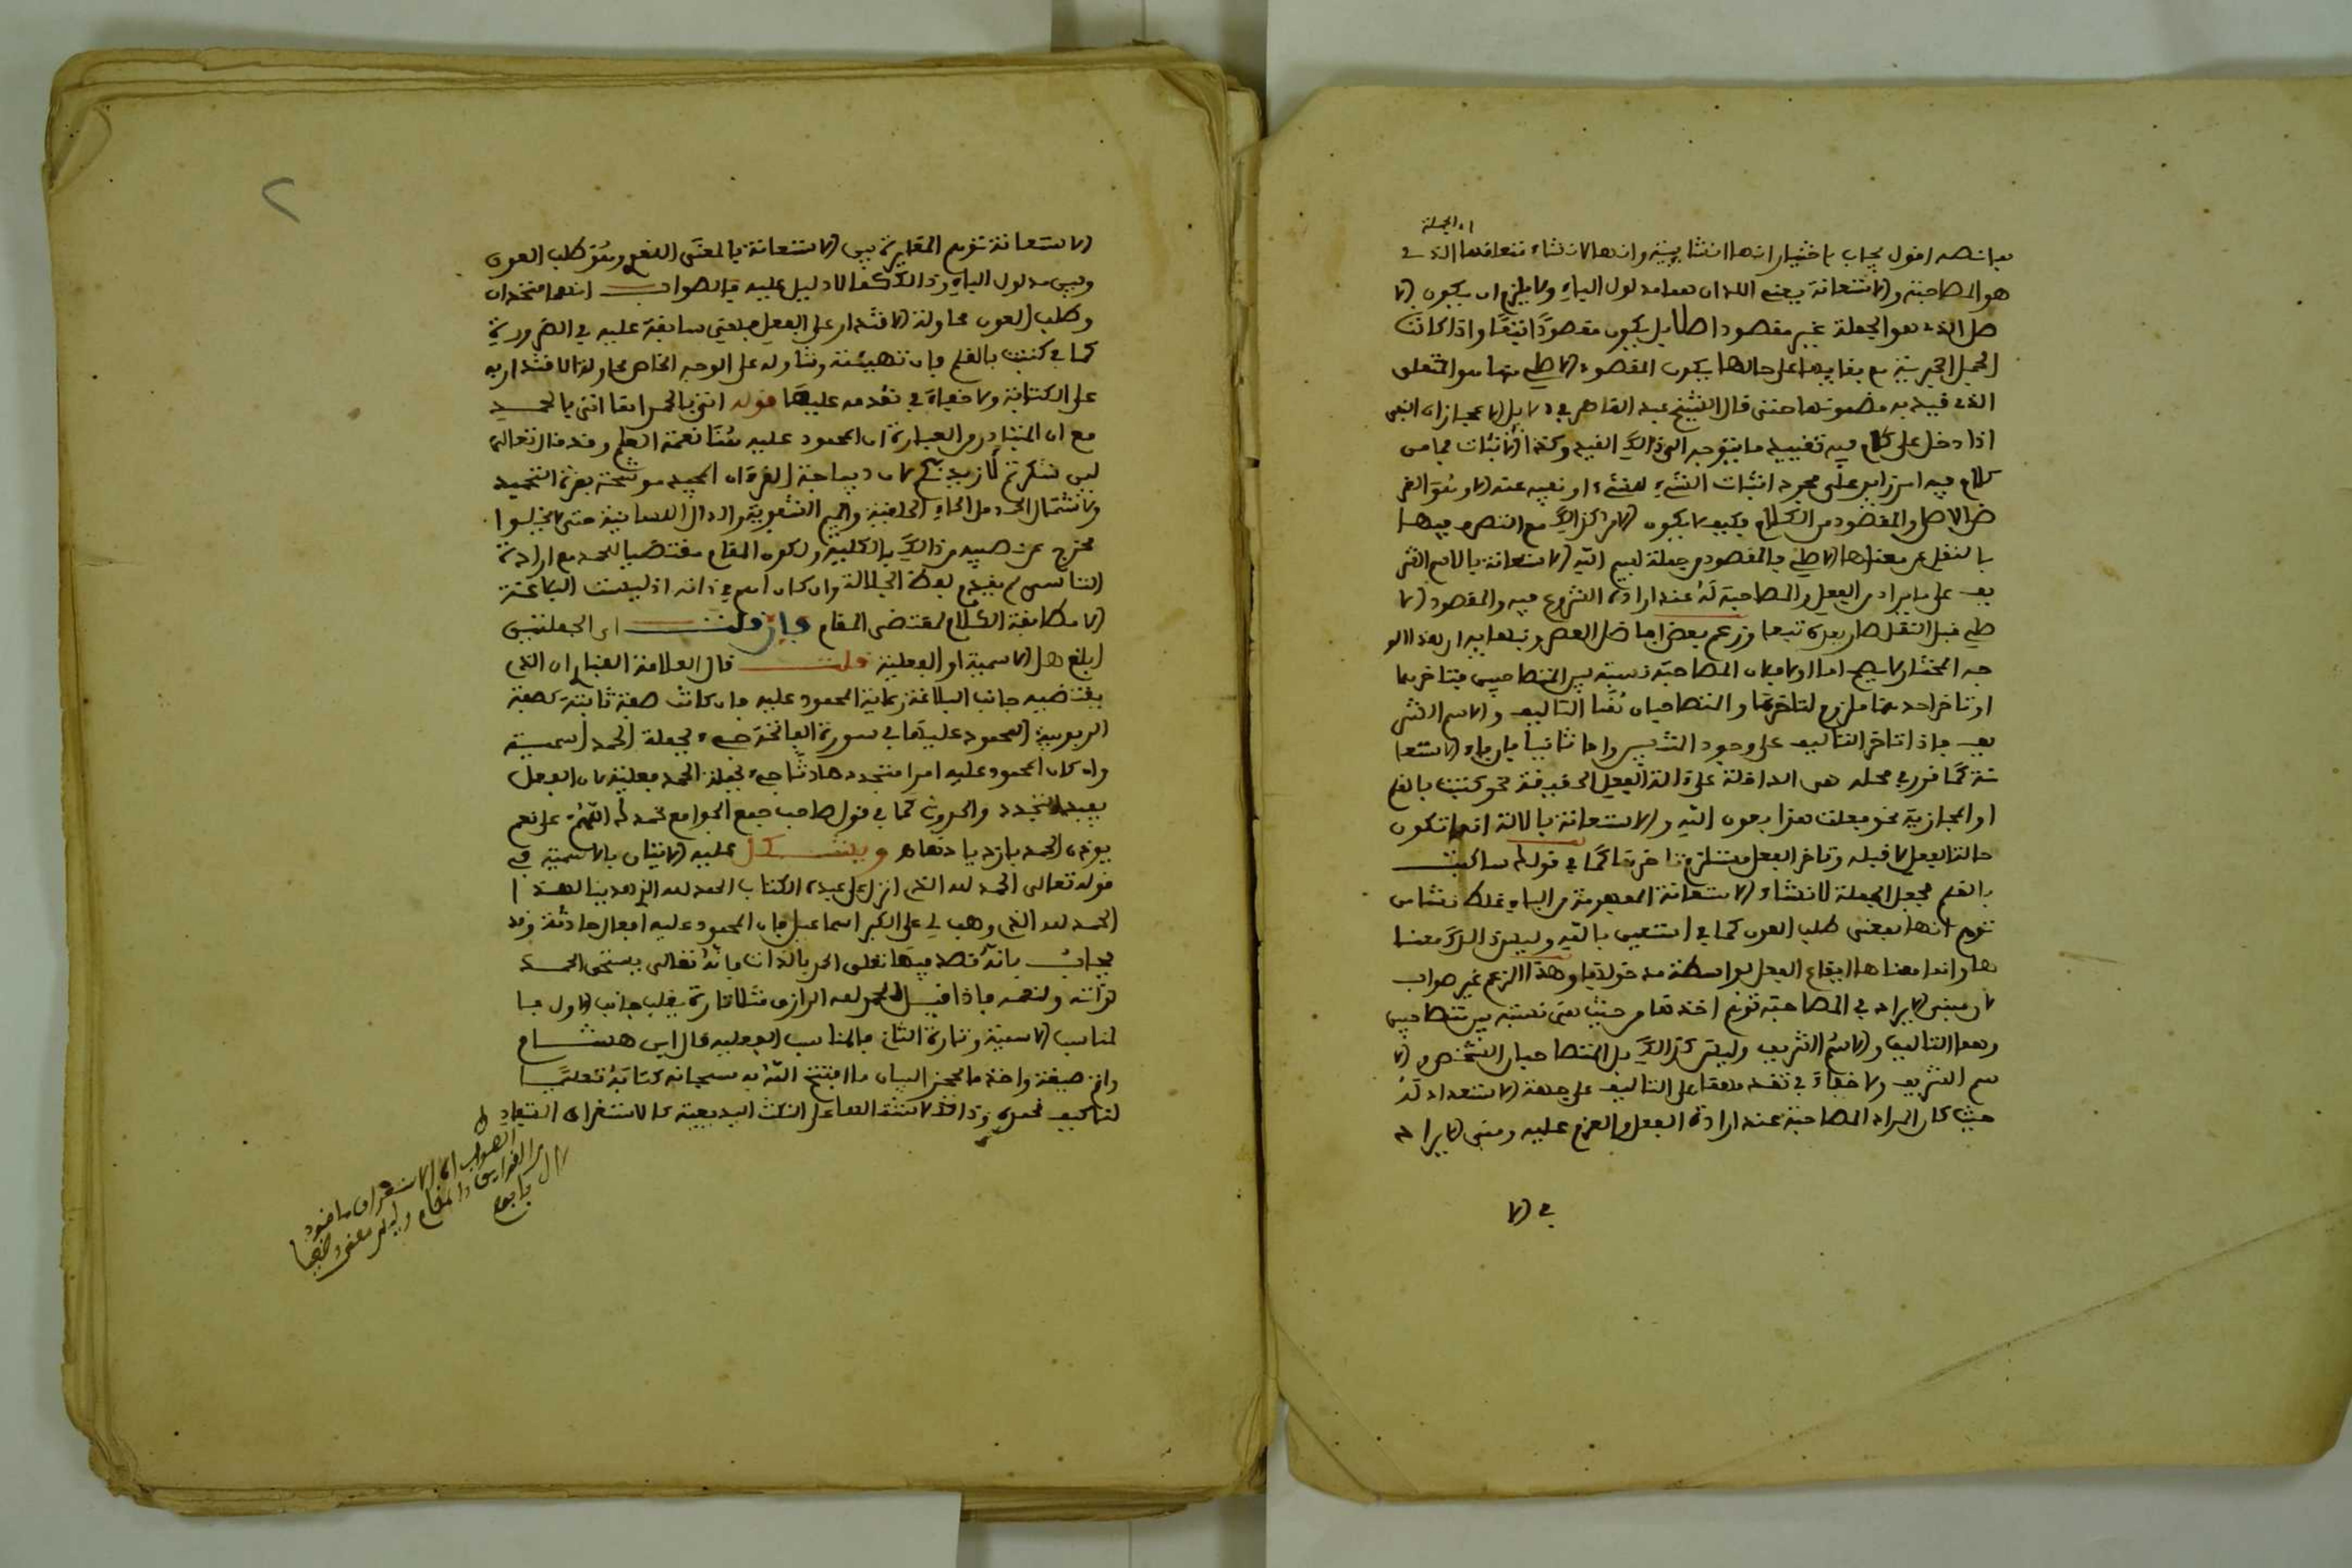 اي الجملة
ما نصه اقول يجاب باختيار انها انشائية وانها لانشاء متعلقها الذي
هو المصاحبة والاستعانة يعني اللذان هما مدلول الباء ولا يلزم ان يكون الا
صل الذي هو الجملة غير مقصود اصلا بل يكون مقصودا تبعا واذا كانت
الجمل الخبرية مع بقايها على حالها يكون المقصود الاصلي منها هو المتعلق
الذي قيد به مضمونها حتى قال الشيخ عبد القاهر في دلايل الاعجاز ان النفي
اذا دخل على كلام فيه تقييد ما يتوجه الى ذالك القيد وكذا الاثبات فما من
كلام فيه امر زايد على مجرد اثبات الشيء للشيء او نفيه عنه الا وهو الغر
ض الاصلي والمقصود من الكلام فكيف لا يكون الامر كذالك مع التصرف فيها
بالنقل عن معناها الاصلي فالمقصود من جملة بسم الله الاستعانة بالاسم الشر
يف على ما يراد من الفعل والمصاحبة له عند ارادة الشروع فيه والمقصود الا
صلي قبل النقل صار بعده تبعا وزعم بعض افاضل العصر ونبهايه ان هذا الو
جه المختار لا يصح اما اولا فلان المصاحبة نسبة بين المتصاحبين فتتاخر عنهما
او تاخر احدهما ملزوم لتاخرها والمتصاحبان هنا التاليف والاسم الشر
يف فاذا تاخر التاليف على وجود التلبس واما ثانيا فلان باء الاستعا
نة كما قرر في محله هي الداخلة على الة الفعل الحقيقة نحو كتبت بالقلم
او المجازية نحو فعلت هذا بعون الله والاستعانة بالالة انما تكون
حالة الفعل لا قبله وتاخر الفعل مستلزم تاخرها كما في قولك ساكتب
بالقلم فجعل الجملة لانشاء الاستعانة المفهومة من الباء غلط نشا من
توهم انها بمعنى طلب العون كما في استعين بالله وليس ذالك معنا
ها وانما معناها ايقاع الفعل بواسطة مدخولها وهذا الزعم غير صواب
لان مبنى الايراد في المصاحبة توهم اخذها من حيث هي نسبة بين متصاحبين
وهما التاليف والاسم الشريف وليس كذالك بل المتصاحبان الشخص والا
سم الشريف ولا خفاء في تقدمهما على التاليف على جهة الاستعداد له
حيث كان المراد المصاحبة عند ارادة الفعل والعزم عليه ومبنى الايراد
في الا
٢
الاستعانة توهم المغايرة بين الاستعانة بالمعنى اللغوي وهو طلب العون
وبين مدلول الباء وذالك مما لا دليل عليه فالصواب انهما متحدان
وطلب العون محاولة الاقتدار على الفعل فهي سابقة عليه في الضرورة
كما في كتبت بالقلم فان تهييئه وتناوله على الوجه الخاص محاولة الاقتدار به
على الكتابة ولا خفاء في تقدمه عليها قوله اتى بالحمد اقا اتى بالحمد
مع ان المتبادر من العبارة ان المحمود عليه هنا نعمة العلم وقد قال تعالى
لين شكرتم لازيدنكم لان ديباجة القرءان المجيد موشحة بغرة التحميد
ولاشتمال الحمد من الحاء الحلقية والميم الشفوية والدال اللسانية حتى لا يخلوا
مخرج عن نصيبه من ذالك بالكلية ولكون المقام مقتضيا للحمد مع ارادة
التاسي لم يقدم لفظ الجلالة وان كان اهم في ذاته اذ ليست البلاغة
الا مطابقة الكلام لمقتضى المقام فان قلت اي الجملتين
ابلغ هل الاسمية او الفعلية قلت قال العلامة الفنا ان الذي
يقتضيه جانب البلاغة رعاية المحمود عليه فان كانت صفة ثابتة كصفة
الربوبية المحمود عليها في سورة الفاتحة جيء بجملة الحمد اسمية
وان كان المحمود عليه امرا متجددا حادثا جيء بجملة الحمد فعلية لان الفعل
يفيد التجدد والحدوث كما في قول صاحب جمع الجوامع نحمدك اللهم على نعم
يوذن الحمد بازديادها ويشكل عليه الاتيان بالاسمية في
قوله تعالى الحمد لله الذي انزل على عبده الكتاب الحمد لله الذي هدينا لهذا
الحمد لله الذي وهب لي على الكبر اسماعيل فان المحمود عليه افعال حادثة وقد
يجاب بانه قصد فيها تعلق الحمد بالذات فانه تعالى يستحق الحمد
لذاته ولنعمه فاذا قيل الحمد لله الرازق مثلا فتارة يغلب جانب الاول فا
لمناسب الاسمية وتارة الثاني فالمناسب الفعلية قال ابن هشام
واثر صيغة واحد ما اعجز البيان ما افتتح الله به سبحانه كتابه تعليما
لنا كيف نحمده وذالك لاشتمالها على النكت البديعية كالاستغراق المفاد
الصواب ان الاستغراق ماخوذ
من القراين والمقام وليس مفهوما
من ال فافهم